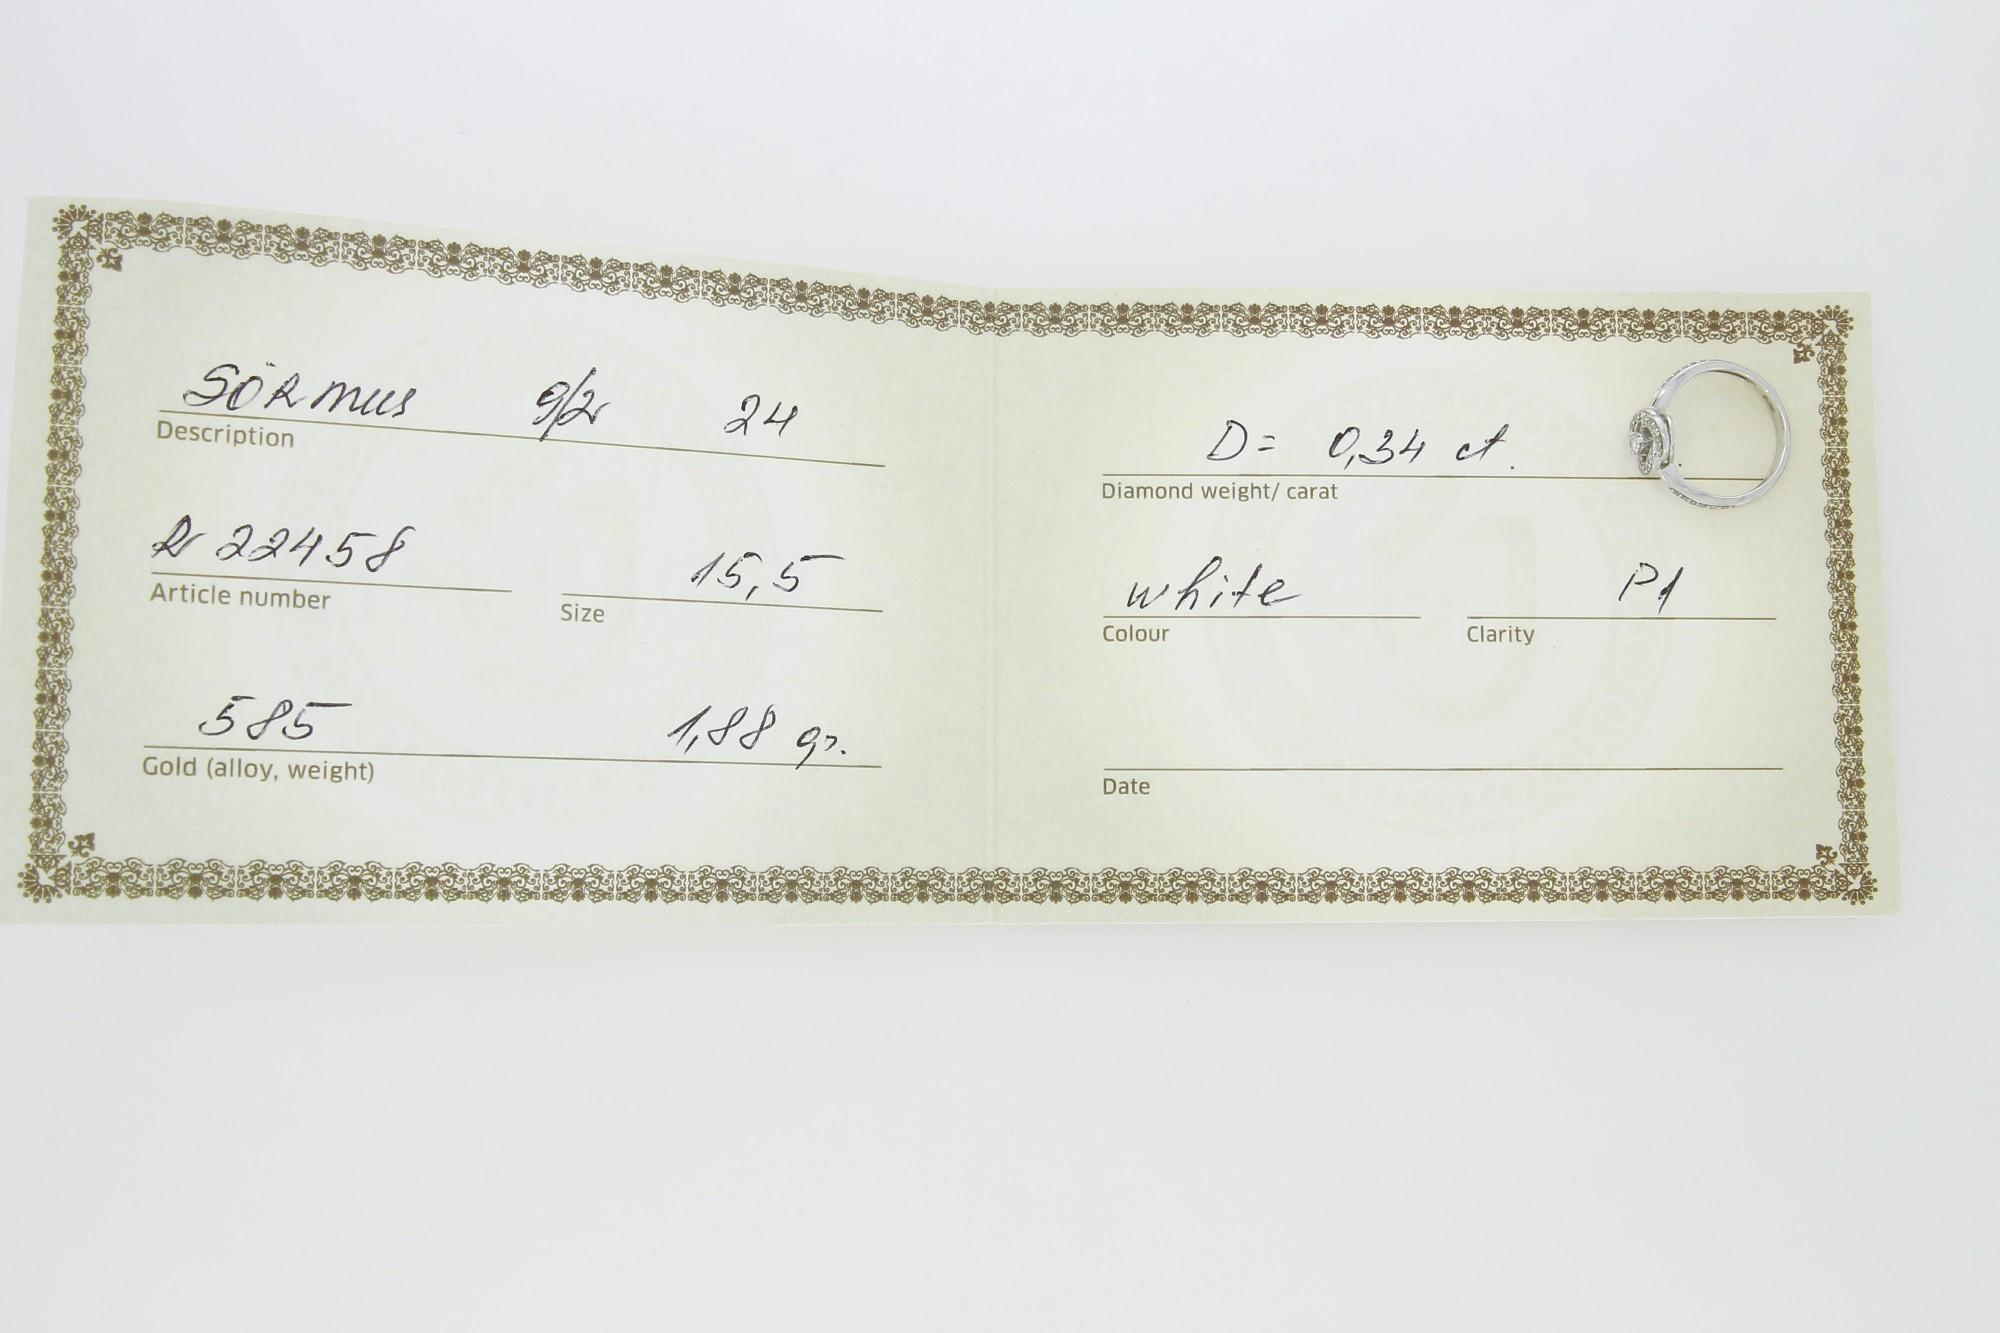 SÕRMUS 24
Description
R 22458 15,5
Article number Size
585 1,88 gr.
Gold (alloy, weight)
D= 0,34 ct.
Diamond weight/ carat
white P1
Colour Clarity
Date